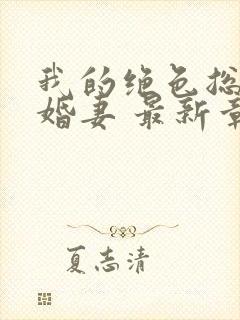 我的绝色总
婚妻 最新章
夏志清